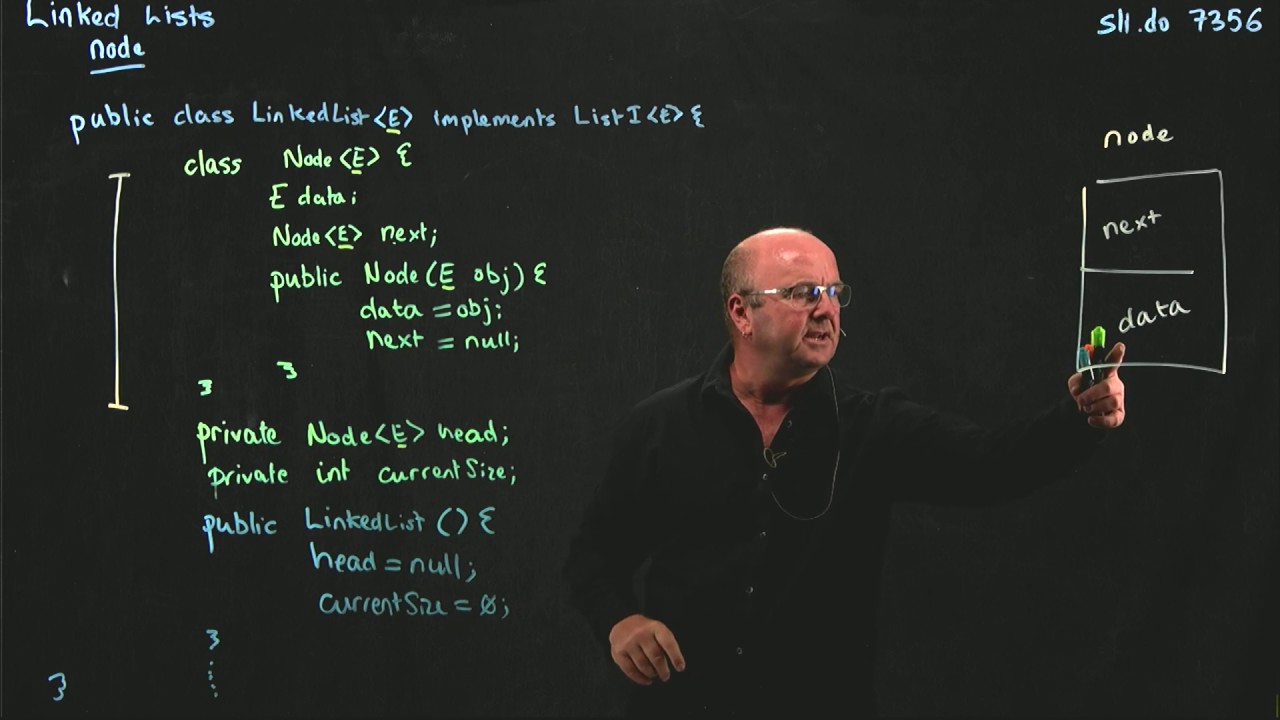 Linked Lists
node
sli.do 7356
public class LinkedList<E> implements ListI<E> {
class Node<E> {
E data;
Node<E> next;
public Node(E obj) {
data = obj;
next = null;
}
}
private Node<E> head;
private int currentSize;
public LinkedList () {
head = null;
currentSize = 0;
}
}
node
next
data